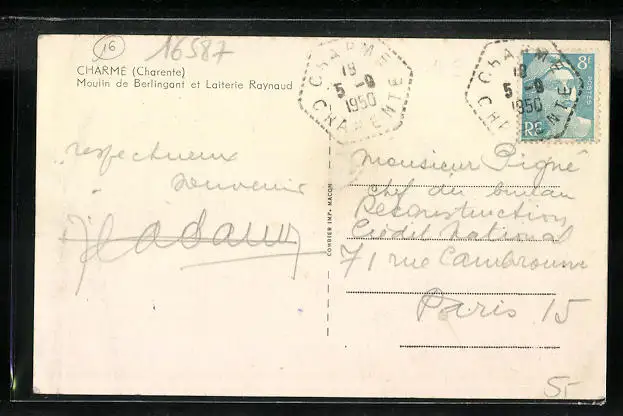 16
16587
CHARMÉ (Charente)
Moulin de Berlingant et Laiterie Raynaud
CHARME
18
5 -9
1950
CHARENTE
CHARME
18
5 -9
1950
CHARENTE
8F
POSTES
RF
respectueux
souvenir
COMBIER IMP. MACON
Monsieur Pigné
chef du bureau
Reconstruction
Crédit National
71 rue Cambronne
Paris 15
5-